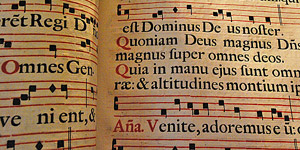 erẽt Regi D
Omnes Gen
ve nient, &
est Dominus Deus noster.
Quoniam Deus magnus Dñs
magnus super omnes deos.
Quia in manu ejus sunt omn
ræ: & altitudines montium ip
Aña. Venite, adoremus e